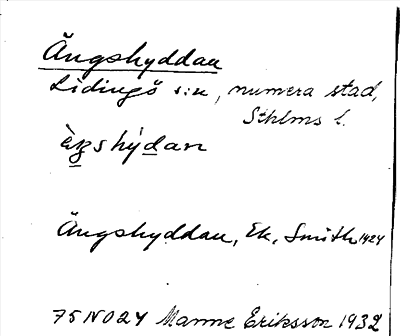 Ängshyddan
Lidingö s:n, numera stad,
Sthlms l.
Ängshyddan, Ek, Smith 1424
75N024 Manne Eriksson 1932